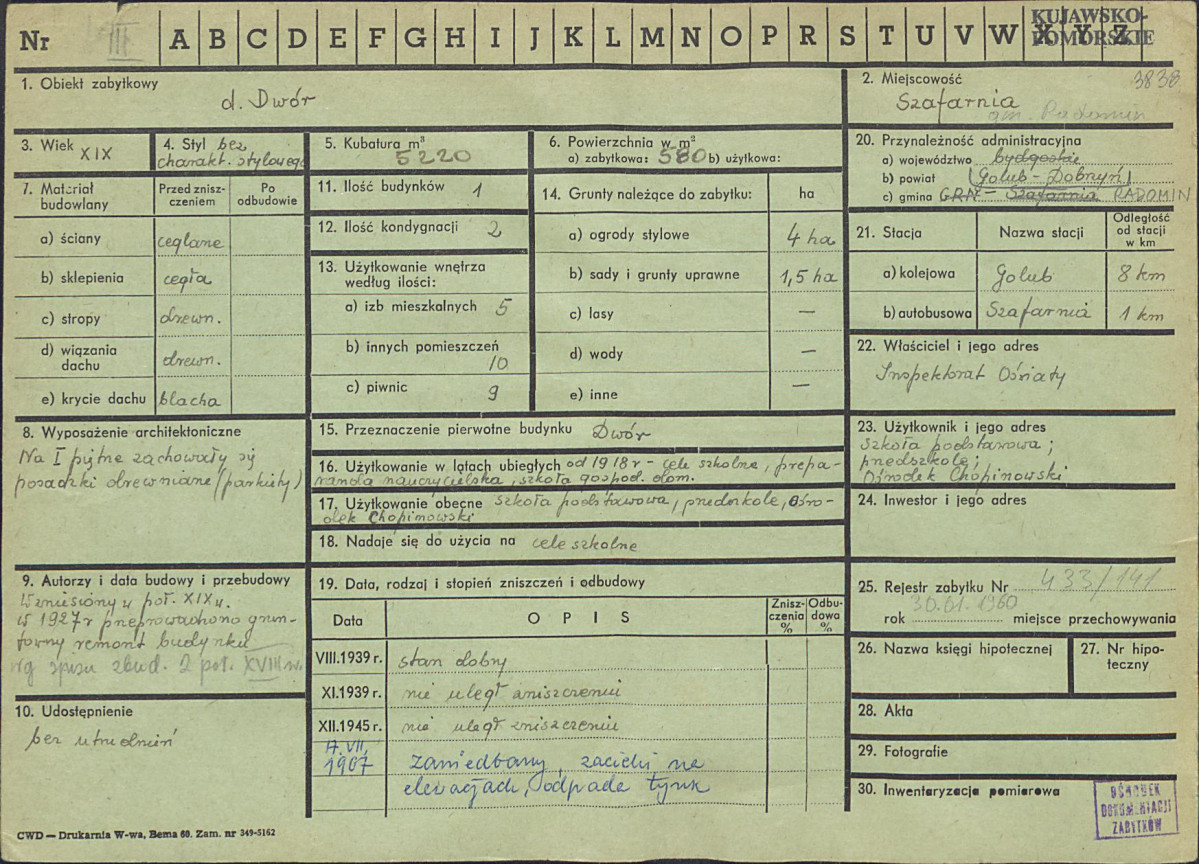 Nr III A B C D E F G H I J K L M N O P R S T U V W X Y Z
KUJAWSKO-
POMORSKIE
1. Obiekt zabytkowy
d. Dwór
2. Miejscowość 3838
Szafarnia
gm. Radomin
3. Wiek XIX
4. Styl bez
charakt. stylowego
5. Kubatura m³
5220
6. Powierzchnia w m²
a) zabytkowa: 580 b) użytkowa:
20. Przynależność administracyjna
a) województwo bydgoskie
b) powiat (Golub-Dobrzyń)
c) gmina GRN - Szafarnia RADOMIN
7. Materiał
budowlany
Przed znisz-
czeniem
Po
odbudowie
a) ściany ceglane
b) sklepienia cegła
c) stropy drewn.
d) wiązania
dachu drewn.
e) krycie dachu blacha
11. Ilość budynków 1
12. Ilość kondygnacji 2
13. Użytkowanie wnętrza
według ilości:
a) izb mieszkalnych 5
b) innych pomieszczeń
10
c) piwnic 9
14. Grunty należące do zabytku: ha
a) ogrody stylowe 4 ha
b) sady i grunty uprawne 1,5 ha
c) lasy —
d) wody —
e) inne —
21. Stacja Nazwa stacji
Odległość
od stacji
w km
a) kolejowa Golub 8 km
b) autobusowa Szafarnia 1 km
22. Właściciel i jego adres
Inspektorat Oświaty
8. Wyposażenie architektoniczne
Na I piętrze zachowały się
posadzki drewniane (parkiety)
15. Przeznaczenie pierwotne budynku Dwór
16. Użytkowanie w latach ubiegłych od 1918 r - cele szkolne, prepa-
randa nauczycielska, szkoła gospod. dom.
17. Użytkowanie obecne szkoła podstawowa, przedszkole, Ośro-
dek Chopinowski
18. Nadaje się do użycia na cele szkolne
23. Użytkownik i jego adres
szkoła podstawowa;
przedszkole;
Ośrodek Chopinowski
24. Inwestor i jego adres
9. Autorzy i data budowy i przebudowy
Wzniesiony w poł. XIX w.
w 1927 r przeprowadzono grun-
towny remont budynku
wg spisu zbud. 2 poł. XVIII w.
10. Udostępnienie
bez utrudnień
19. Data, rodzaj i stopień zniszczeń i odbudowy
Data O P I S
Znisz-
czenia
%
Odbu-
dowa
%
VIII.1939 r. stan dobry
XI.1939 r. nie uległ zniszczeniu
XII.1945 r. nie uległ zniszczeniu
17. VII.
1967 zaniedbany, zacieki na
elewacjach, odpada tynk
25. Rejestr zabytku Nr 433/141
30.01.1960
rok miejsce przechowywania
26. Nazwa księgi hipotecznej
27. Nr hipo-
teczny
28. Akta
29. Fotografie
30. Inwentaryzacja pomiarowa
OŚRODEK
DOKUMENTACJI
ZABYTKÓW
CWD — Drukarnia W-wa, Bema 60. Zam. nr 349-5162